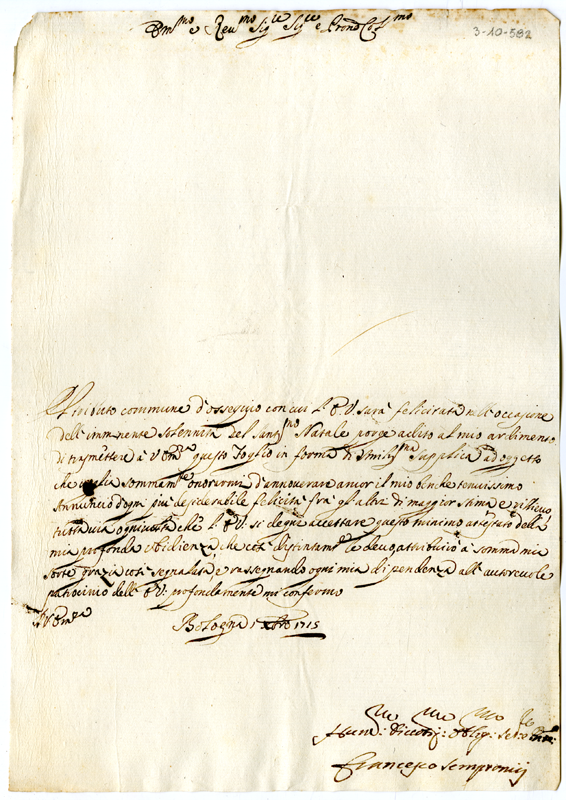 Em.mo e Reu.mo Sig.re Sig.re e Pron Col.mo
3-10-582
Il tributo commune d'ossequio con cui l'E.V. sarà felicitata nell'occasione
dell'imminente Solennità del Sant.mo Natale porge adito al mio ardimento
di trasmettere à V Em.za questo foglio in forma di Umiliss.ma Supplica ad oggetto
che voglia sommam.te onorarmi d'annoverare ancor il mio benche tenuissimo
Annuncio d'ogni più desiderabile felicità frà gl'altri di maggior stima e
tuttavia ogniuolta che l'E.V. si degni accettare questo minimo attestato della
mia profonda obidienza, che così distintam.te le deuo, attribuirò à somma mia
sorte grazia così segnalata e rassegnando ogni mia dipendenza all'autoreuole
patrocinio dell'E.V. profondamente mi confermo
D V Em.za
Bologna 1 Xbre 1715
Hum.mo Diuot.mo Oblig.mo Se.re
Francesco Sempronij